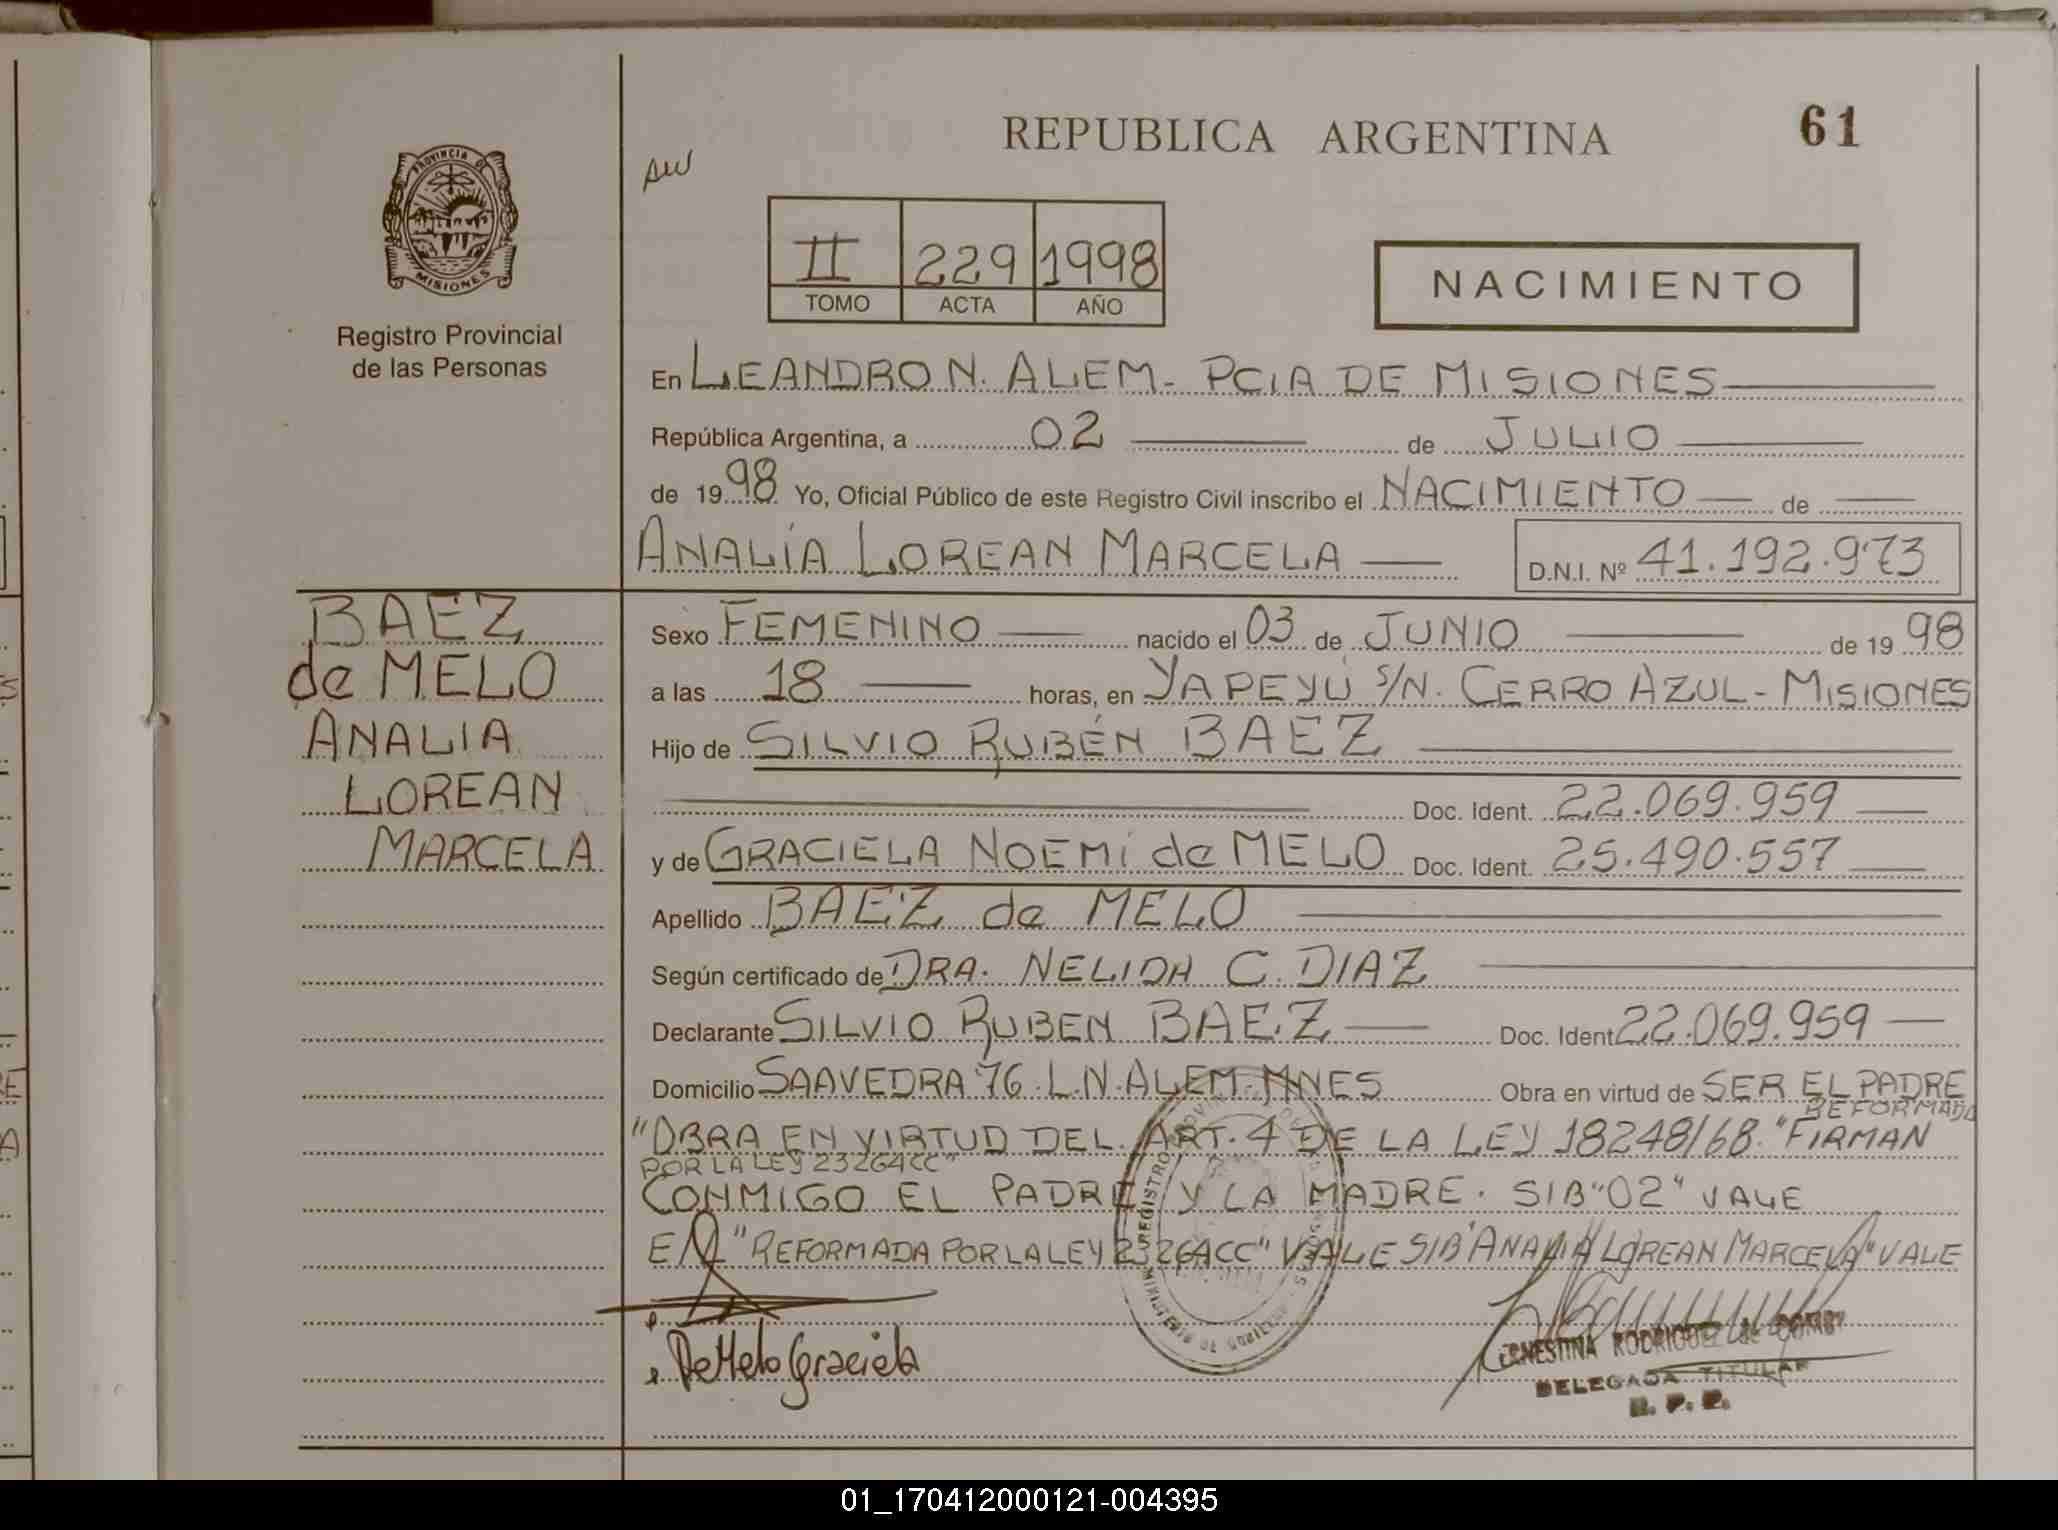 REPUBLICA ARGENTINA
61
PROVINCIA DE
MISIONES
Registro Provincial
de las Personas
II 229 1998
TOMO ACTA AÑO
NACIMIENTO
En LEANDRO N. ALEM - PCIA DE MISIONES
República Argentina, a 02 de JULIO
de 1998 Yo, Oficial Público de este Registro Civil inscribo el NACIMIENTO de
ANALÍA LOREAN MARCELA D.N.I. Nº 41.192.973
BAEZ
de MELO
ANALIA
LOREAN
MARCELA
Sexo FEMENINO nacido el 03 de JUNIO de 19 98
a las 18 horas, en YAPEYÚ S/N. CERRO AZUL - MISIONES
Hijo de SILVIO RUBÉN BAEZ
Doc. Ident. 22.069.959
y de GRACIELA NOEMÍ de MELO Doc. Ident. 25.490.557
Apellido BAEZ de MELO
Según certificado de DRA. NELIDA C. DIAZ
Declarante SILVIO RUBEN BAEZ Doc. Ident 22.069.959
Domicilio SAAVEDRA 76. L.N. ALEM - MNES Obra en virtud de SER EL PADRE
REFORMADO
"OBRA EN VIRTUD DEL ART. 4 DE LA LEY 18248/68." FIRMAN
POR LA LEY 23264CC"
CONMIGO EL PADRE Y LA MADRE. S/B "02" VALE
E/L "REFORMADA POR LA LEY 23264CC" VALE S/B "ANALIA LOREAN MARCELA" VALE
De Melo Graciela
RODRIGUEZ de
DELEGADA TITULAR
R. P. P.
01_170412000121-004395